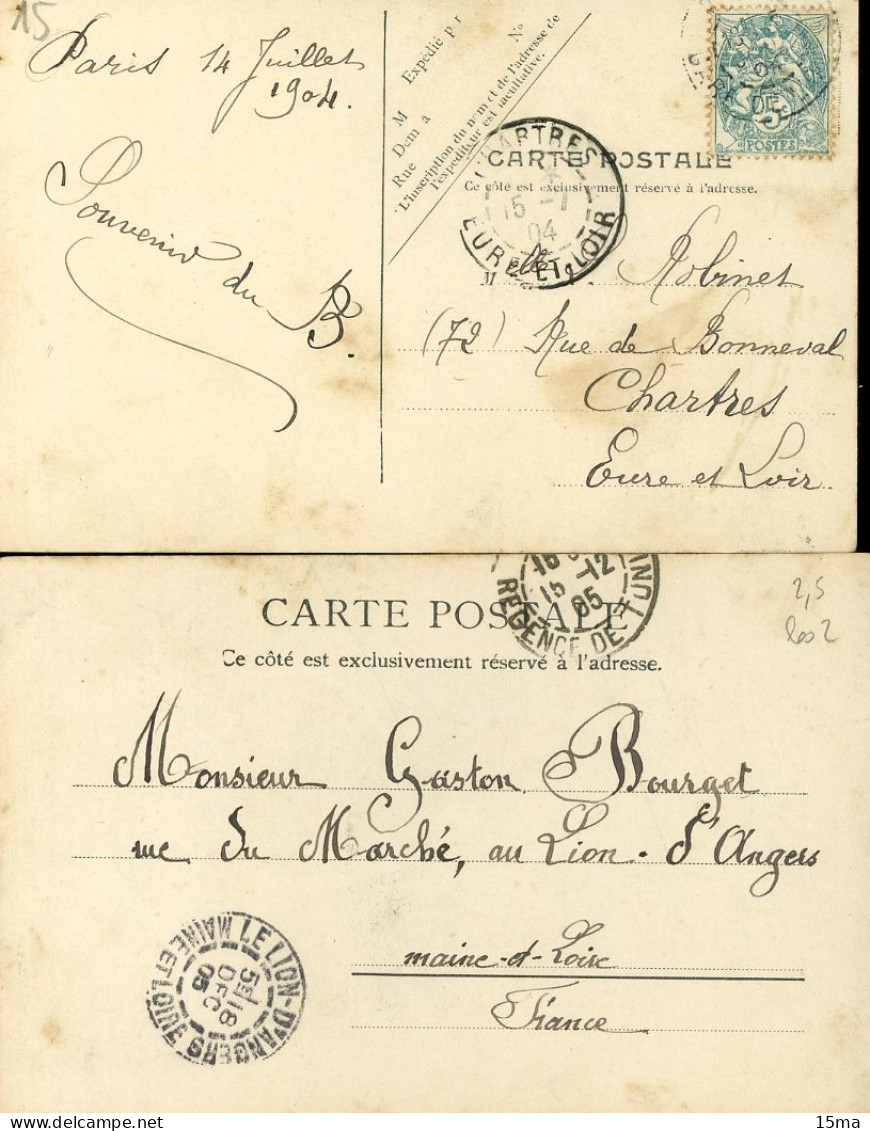 15
Paris 14 Juillet
1904.
Souvenir du B.
Nº
Expédié par
M
Dem à
Rue
L'inscription du nom et de l'adresse de
l'expéditeur est facultative.
5c
POSTES
CARTE POSTALE
Ce côté est exclusivement réservé à l'adresse.
CHARTRES
15 -7
04
EURE-ET-LOIR
M lle Robinet
(72) Rue de Bonneval
Chartres
Eure et Loir
15-12
05
REGENCE DE TUNIS
CARTE POSTALE
Ce côté est exclusivement réservé à l'adresse.
2,5
Monsieur Gaston Bourget
rue du Marché, au Lion-d'Angers
maine-et-Loire
France
LE LION-D'ANGERS
18
DEC
05
MAINE ET LOIRE
15ma